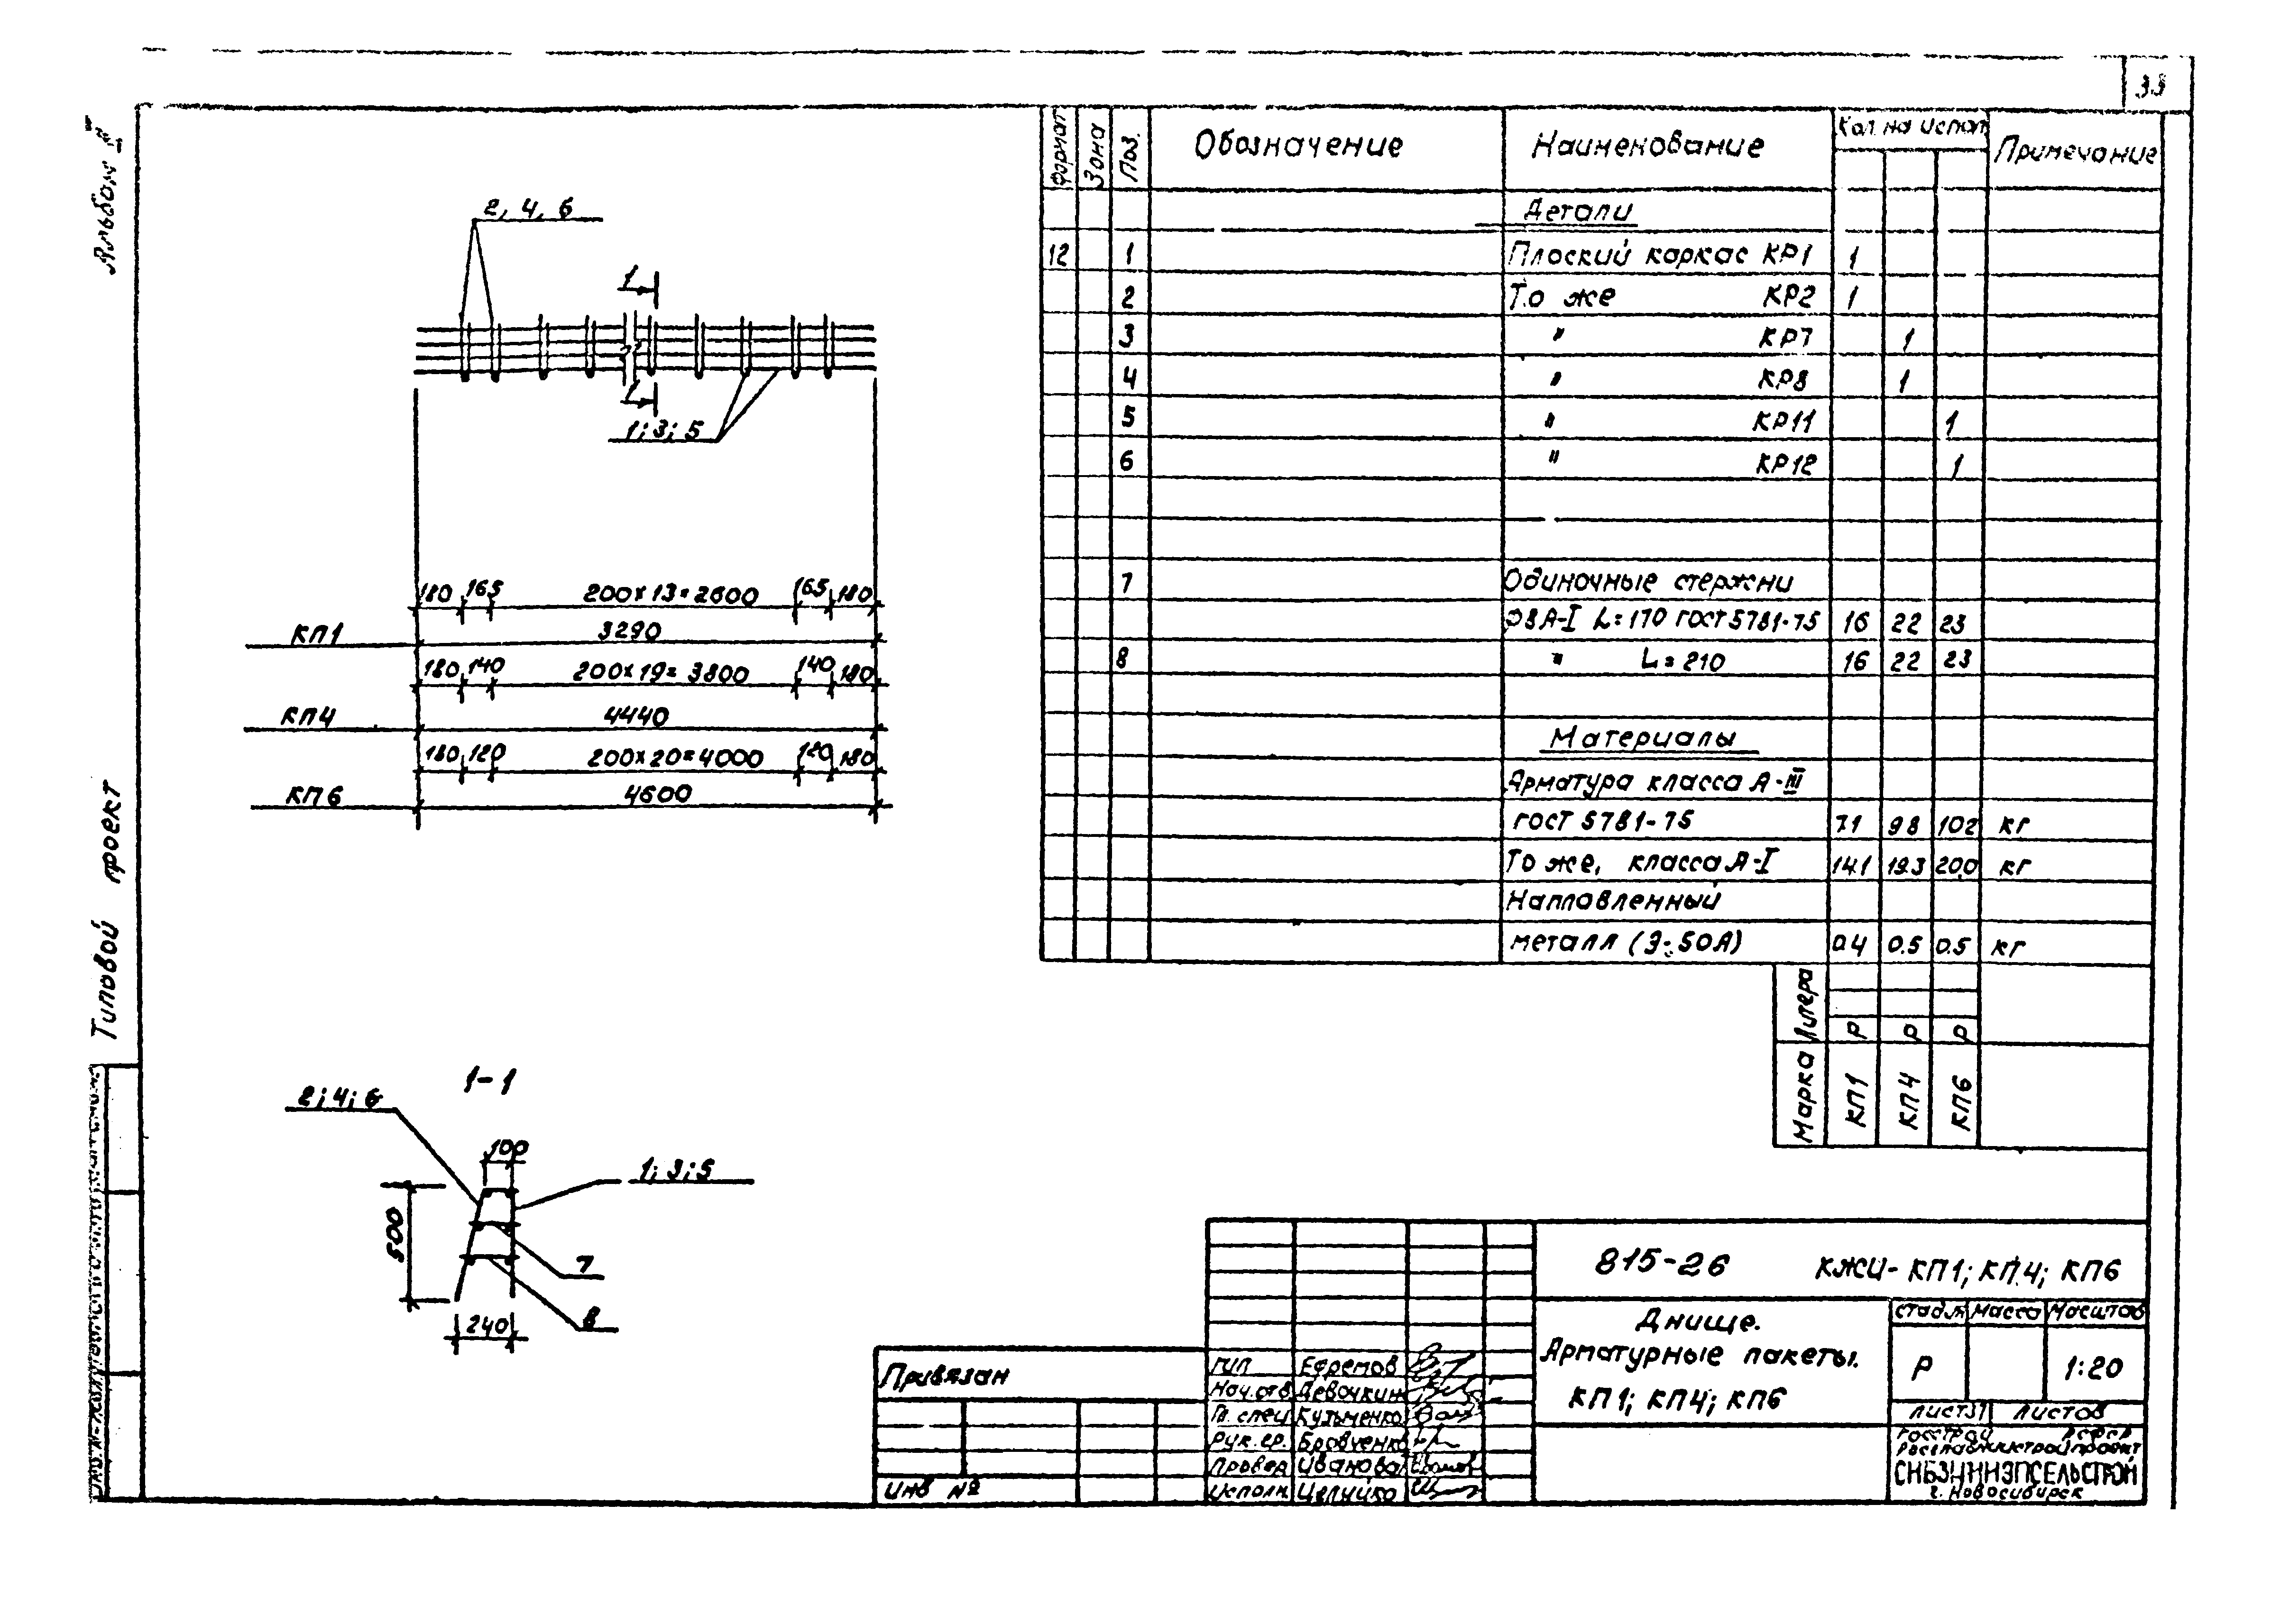 33
Альбом II
Типовой проект
2, 4, 6
1
1
1; 3; 5
180 165 200×13=2600 165 180
КП1 3290
180 140 200×19=3800 140 180
КП4 4440
180 120 200×20=4000 120 180
КП6 4600
1-1
2; 4; 6
100
1; 3; 5
500
7
8
240
Формат Зона Поз. Обозначение Наименование Кол. на испол. Примечание
Детали
12 1 Плоский каркас КР1 1
2 То же КР2 1
3 " КР7 1
4 " КР8 1
5 " КР11 1
6 " КР12 1
7 Одиночные стержни
Ф8А-I L=170 ГОСТ 5781-75 16 22 23
8 " L=210 16 22 23
Материалы
Арматура класса А-III
ГОСТ 5781-75 7.1 9.8 10.2 кг
То же, класса А-I 14.1 19.3 20.0 кг
Наплавленный
металл (Э-50А) 0.4 0.5 0.5 кг
Литера Р Р Р
Марка КП1 КП4 КП6
815-26 КЖИ-КП1; КП4; КП6
Днище.
Арматурные пакеты.
КП1; КП4; КП6
Стадия Масса Масштаб
Р 1:20
Лист 31 Листов
Госстрой РСФСР
Росглавниистройпроект
СИБЗНИИЭПСЕЛЬСТРОЙ
г. Новосибирск
Привязан
Инв №
ГИП Ефремов
Нач.отв Девочкин
Гл. спец Кузьменко
Рук. гр. Бровченко
Провер Иванова
Исполн. Целуйко